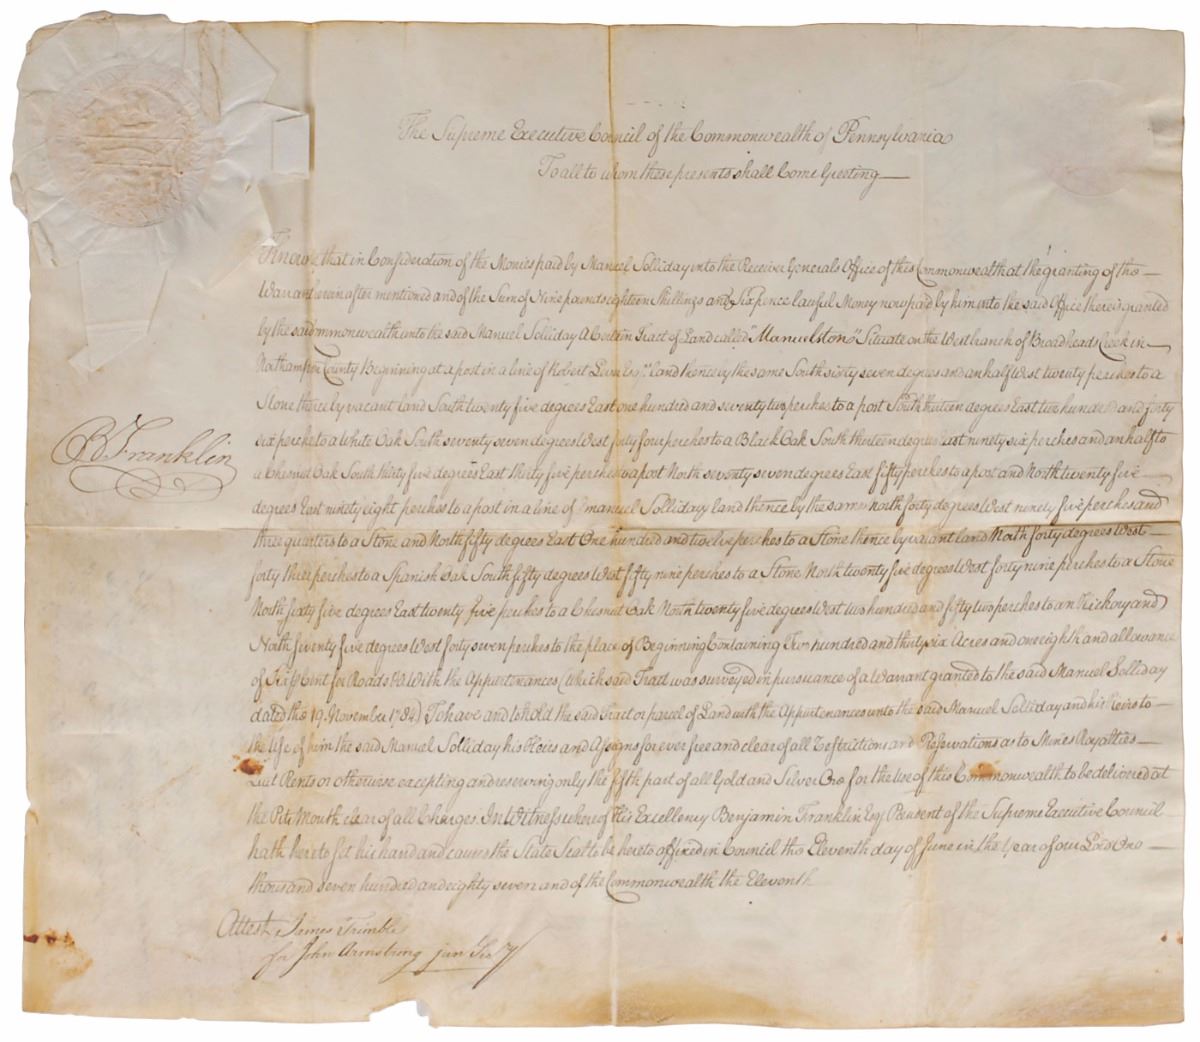 The Supreme Executive Council of the Commonwealth of Pennsylvania
To all to whom these presents shall Come Greeting
Know that in Consideration of the Monies paid by Manuel Solliday into the Receiver Generals Office of this Commonwealth at the granting of the
Warrant herein after mentioned and of the Sum of Nine pounds eighteen Shillings and Sixpence lawful Money now paid by him into the said Office there is granted
by the said mmonwealth unto the said Manuel Solliday A Certain Tract of Land called "Manuelstone" Situate on the West branch of Broadheads Creek in
Northampton County Beginning at a post in a line of Robert Levers Esqrs. land thence by the same South sixty seven degrees and an half West twenty perches to a
Stone thence by vacant land South twenty five degrees East one hundred and seventy two perches to a post South thirteen degrees East two hundred and forty
six perches to a White Oak South seventy seven degrees West forty four perches to a Black Oak South thirteen degrees East ninety six perches and an half to
a Chesnut Oak South thirty five degrees East thirty five perches to a post North seventy seven degrees East fifty perches to a post and North twenty five
degrees East ninety eight perches to a post in a line of Emanuel Solliday land thence by the same North forty degrees West ninety five perches and
three quarters to a Stone and North fifty degrees East One hundred and twelve perches to a Stone thence by vacant land North forty degrees West
forty three perches to a Spanish Oak South fifty degrees West fifty nine perches to a Stone North twenty five degrees West forty nine perches to a Stone
North sixty five degrees East twenty five perches to a Chesnut Oak North twenty five degrees West two hundred and fifty two perches to an Hickory and
North seventy five degrees West forty seven perches to the place of Beginning Containing Two hundred and thirty six Acres and one eighth and allowance
of Six P Cent for Roads &c With the Appurtenances (Which said Tract was surveyed in pursuance of a Warrant granted to the said Manuel Solliday
dated the 19. November 1784) To have and to hold the said Tract or parcel of Land with the Appurtenances unto the said Manuel Solliday and his Heirs to
the Use of him the said Manuel Solliday his Heirs and Assigns for ever free and clear of all Restrictions and Reservations as to Mines Royalties
Quit Rents or otherwise excepting and reserving only the fifth part of all Gold and Silver Ore for the Use of this Commonwealth to be delivered at
the Pits Mouth clear of all Charges. In Witness whereof His Excellency Benjamin Franklin Esq President of the Supreme Executive Council
hath hereto set his hand and caused the State Seal to be hereto affixed in Council the Eleventh day of June in the Year of our Lord One
thousand seven hundred and eighty seven and of the Commonwealth the Eleventh
B Franklin
Attest James Trimble
for John Armstrong jun Secy